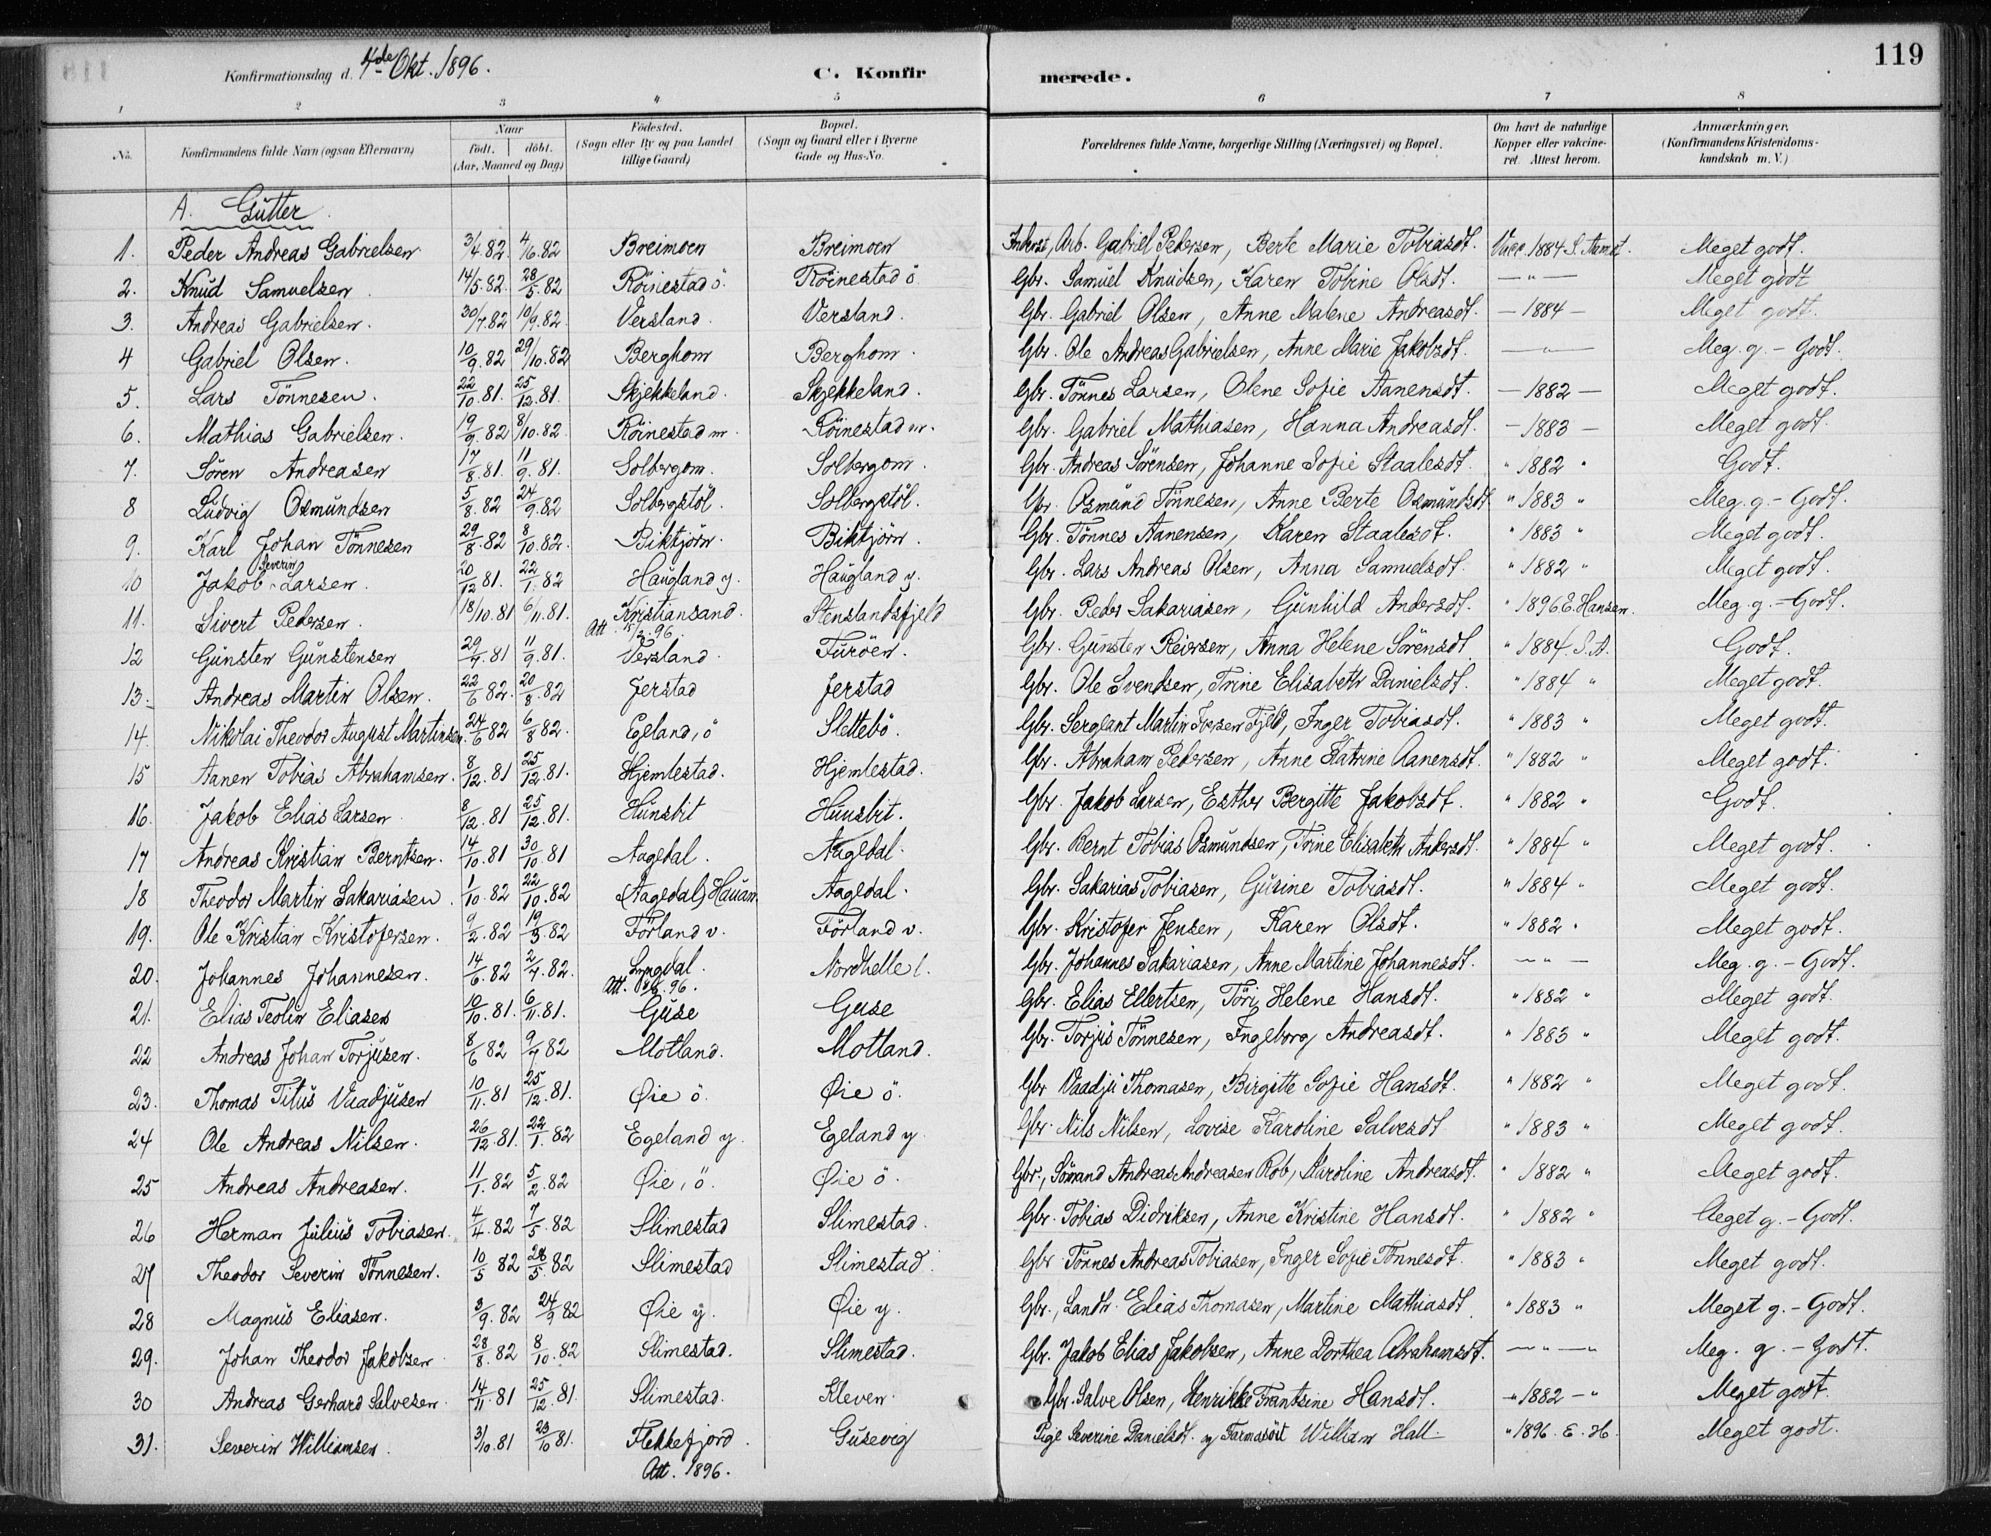 119
Konfirmationsdag d. 4de Okt. 1896.
C. Konfirmerede.
1 2 3 4 5 6 7 8
No. Konfirmandens fulde Navn (ogsaa Efternavn) Naar født. døbt. (Aar, Maaned og Dag) Fødested. (Sogn eller By og paa Landet tillige Gaard) Bopæl. (Sogn og Gaard eller i Byerne Gade og Hus-No. Forældrenes fulde Navne, borgerlige Stilling (Næringsvei) og Bopæl. Om havt de naturlige Kopper eller vakcineret. Attest herom. Anmærkninger. (Konfirmandens Kristendomskundskab m. V.)
A. Gutter
1. Peder Andreas Gabrielsen 3/4.82. 4/6.82 Breimoen Breimoen Arb. Gabriel Pedersen, Berte Marie Tobiasdt. Vacc. 1884 S. Aamot. Meget godt.
2. Knud Samuelsen 14/5.82. 28/5.82 Röinestad ö. Röinestad ö Gbr. Samuel Knudsen, Karen Tobine Olsdt. — " — Meget godt
3. Andreas Gabrielsen. 30/7.82 10/9.82. Versland. Versland. Gbr. Gabriel Olsen, Anne Malene Andreasdt. — 1884 — Meget godt.
4 Gabriel Olsen. 10/9.82 29/10.82 Berghom Berghom. Gbr. Ole Andreas Gabrielsen, Anne Marie Jakobsdt. — " — Meg. g. - Godt.
5. Lars Tönnesen. 22/10.81. 25/12.81. Skjekkeland. Skjekkeland. Gbr. Tönnes Larsen, Olene Sofie Aanensdt. — 1882 — Meget godt.
6. Mathias Gabrielsen. 19/9.82 8/10.82. Röinestad m. Röinestad m. Gbr. Gabriel Mathiasen, Hanna Andreasdt. — 1883 — Meget godt.
7. Sören Andreasen 17/8.81. 11/9.81. Solbergom. Solbergom. Gbr. Andreas Sörensen, Johanne Sofie Staalesdt. " 1882 " Godt.
8 Ludvig Osmundsen 5/8.82 24/9.82 Solbergstöl. Solbergstöl. Gbr. Osmund Tönnesen, Anne Berte Osmundsdt. " 1883 " Meg. g. - Godt.
9. Karl Johan Tönnesen 29/8.82 8/10.82. Biktjörn. Biktjörn. Gbr. Tönnes Aanensen, Karen Staalesdt. " 1883 " Meget godt.
10 Jakob Severin Larsen. 20/12.81. 22/1.82 Haugland y. Haugland y. Gbr. Lars Andreas Olsen, Anna Samuelsdt. " 1882 " Meget godt.
11. Sivert Pedersen. 18/10.81 6/11.81. Kristiansand. Stenslandsfjeld Gbr. Peder Sakariasen, Gunhild Andersdt. " 1896 E. Hansen. Meg. g. - Godt.
Att
12 Gunsten Gunstensen 29/7.81 11/9.81. Versland. Furöen. Gbr. Gunsten Reiersen, Anna Helene Sörensdt. " 1884. S. A. Godt.
13. Andreas Martin Olsen. 22/6.82. 20/8.82 Jerstad Jerstad Gbr. Ole Svendsen, Trine Elisabeth Danielsdt. " 1884 " Meget godt.
14. Nikolai Theodor August Martinsen. 24/6.82 6/8.82. Egeland, ö Slettebö. Gbr. Sergeant Martin Iversen Fjeld, Inger Tobiasdt. " 1883 " Meget godt.
15 Aanen Tobias Abrahamsen. 8/12.81 25/12.81. Hjemlestad. Hjemlestad. Gbr. Abraham Pedersen, Anne Katrine Aanensdt. " 1882 " Meget godt.
16. Jakob Elias Larsen 8/12.81 25/12.81. Hunsbit Hunsbit. Gbr. Jakob Larsen, Esther Bergitte Jakobsdt. " 1882 " Godt.
17 Andreas Kristian Berntsen. 14/10.81 30/10.81 Aagedal. Aagedal. Gbr. Bernt Tobias Osmundsen, Trine Elisabeth Andersdt. " 1884 " Meget godt.
18 Theodor Martin Sakariasen. 1/10.82 22/10.82 (Aagedal) Hauan. Aagedal. Gbr. Sakarias Tobiasen, Gusine Tobiasdt. " 1884 " Meget godt.
19. Ole Kristian Kristofersen. 9/2.82 19/3.82 Förland v. Förland v. Gbr. Kristofer Jensen, Karen Olsdt. " 1882 " Meget godt.
20. Johannes Johannesen. 14/6.82 2/7.82. Lyngdal. Nordhelle l. Gbr. Johannes Sakariasen, Anne Martine Johannesdt. — " — Meg. g. - Godt.
Att. 96.
21. Elias Teolin Eliasen 10/10.81. 6/11.81. Guse Guse Gbr. Elias Ellertsen, Töri Helene Hansdt. " 1882 " Meget godt.
22 Andreas Johan Torjusen. 8/6.82 9/7.82 Motland. Motland. Gbr. Torjus Tönnesen, Ingeborg Andreasdt. " 1883 " Meget godt.
23. Thomas Titus Vaadjusen 10/11.81 25/12.81. Øie ö. Øie ö. Gbr Vaadju Thomasen, Birgitte Sofie Hansdt. " 1882 " Meget godt.
24 Ole Andreas Nilsen. 26/12.81. 22/1.82 Egeland y. Egeland y. Gbr. Nils Nilsen, Lovise Karoline Salvesdt " 1883 " Meget godt.
25 Andreas Andreasen. 11/1.82 5/2.82 Øie, ö. Øie ö. Gbr., Andreas Andreasen Rob, Karoline Andreasdt. " 1882 " Meget godt.
26 Herman Julius Tobiasen. 4/4.82 7/5.82 Slimestad Slimestad. Gbr. Tobias Didriksen, Anne Kristine Hansdt. " 1882 " Meget g. - Godt.
27 Theodor Severin Tönnesen. 10/5 82 28/5.82 Slimestad Slimestad. Gbr Tönnes Andreas Tobiasen, Inger Sofie Tönnesdt. " 1883 " Meget godt.
28 Magnus Eliasen. 3/9.82 24/9 82 Øie y. Øie y. Gbr., Landh. Elias Thomasen, Martine Mathiasdt " 1883 " Meget g. - Godt.
29. Johan Theodor Jakobsen 28/8.82 8/10.82 Slimestad. Slimestad. Gbr. Jakob Elias Jakobsen, Anne Dorthea Abrahamsdt. — " — Meg. g. - Godt.
30 Andreas Gerhard Salvesen 14/11.81 25/12.81. Slimestad. Kleven. Gbr. Salve Olsen, Henrikke Frantsine Hansdt. " 1882 — " Meget godt.
31. Severin Williamsen 3/10.81 23/10 81. Flekkefjord. Gusevig Pige Severine Danielsdt. og Farmasöit William Hall. " 1896. E. H. Meget godt.
Att. 1896.